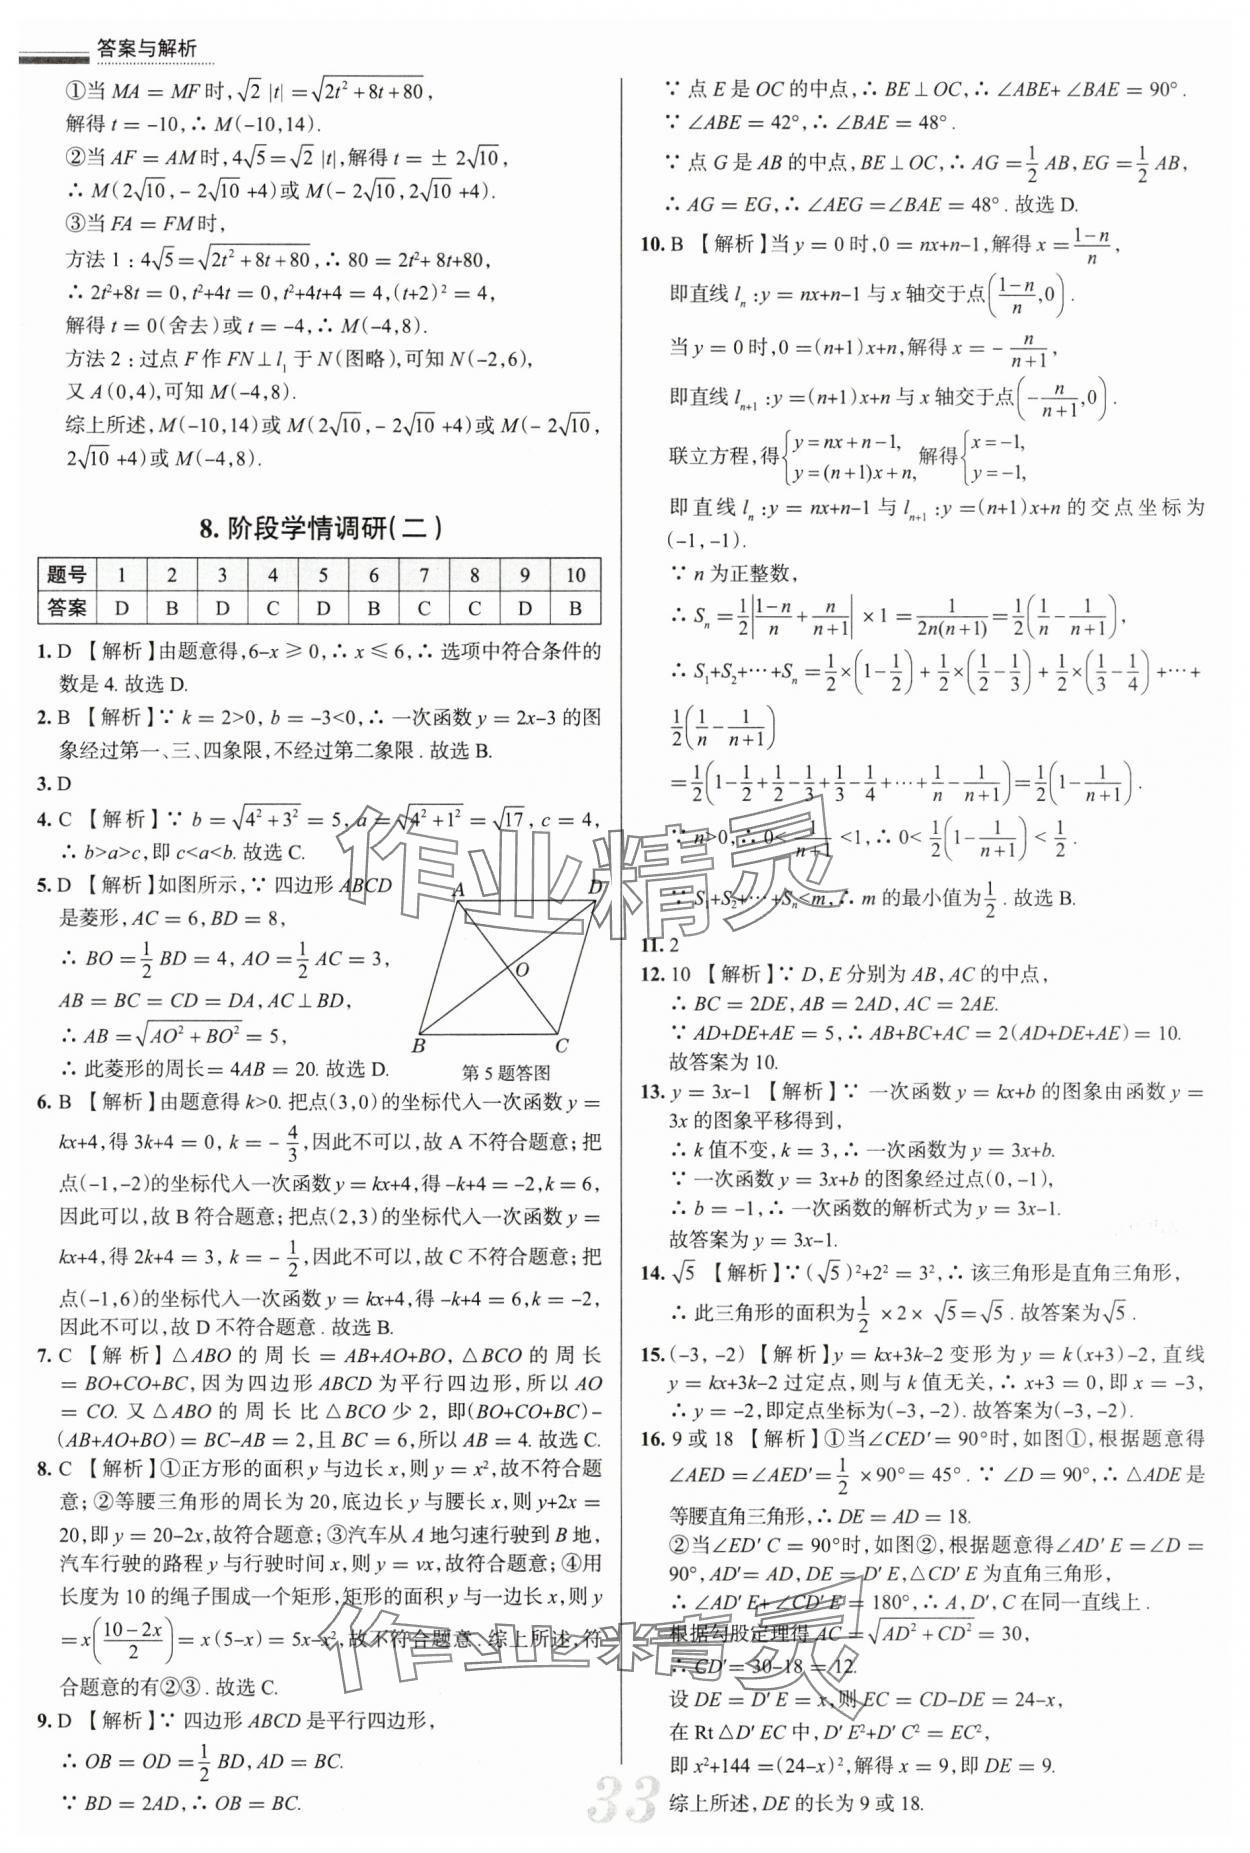 答案与解析
①当 MA = MF 时, √2 |t| = √(2t²+8t+80),
解得 t = -10, ∴ M(-10,14).
②当 AF = AM 时, 4√5 = √2 |t|, 解得 t = ± 2√10,
∴ M(2√10, -2√10+4)或 M(-2√10, 2√10+4).
③当 FA = FM 时,
方法 1 : 4√5 = √(2t²+8t+80), ∴ 80 = 2t²+8t+80,
∴ 2t²+8t = 0, t²+4t = 0, t²+4t+4 = 4, (t+2)² = 4,
解得 t = 0(舍去)或 t = -4, ∴ M(-4,8).
方法 2 : 过点 F 作 FN⊥l₁ 于 N(图略), 可知 N(-2,6),
又 A(0,4), 可知 M(-4,8).
综上所述, M(-10,14)或 M(2√10, -2√10+4)或 M(-2√10,
2√10+4)或 M(-4,8).
8. 阶段学情调研(二)
题号 1 2 3 4 5 6 7 8 9 10
答案 D B D C D B C C D B
1. D 【解析】由题意得, 6-x ≥ 0, ∴ x ≤ 6, ∴ 选项中符合条件的
数是 4. 故选 D.
2. B 【解析】∵ k = 2>0, b = -3<0, ∴ 一次函数 y = 2x-3 的图
象经过第一、三、四象限, 不经过第二象限. 故选 B.
3. D
4. C 【解析】∵ b = √(4²+3²) = 5, a = √(4²+1²) = √17, c = 4,
∴ b>a>c, 即 c<a<b. 故选 C.
5. D 【解析】如图所示, ∵ 四边形 ABCD
是菱形, AC = 6, BD = 8,
∴ BO = 1/2 BD = 4, AO = 1/2 AC = 3,
AB = BC = CD = DA, AC⊥BD,
∴ AB = √(AO²+BO²) = 5,
∴ 此菱形的周长 = 4AB = 20. 故选 D.
A D
O
B C
第 5 题答图
6. B 【解析】由题意得 k>0. 把点(3,0)的坐标代入一次函数 y =
kx+4, 得 3k+4 = 0, k = -4/3, 因此不可以, 故 A 不符合题意; 把
点(-1,-2)的坐标代入一次函数 y = kx+4, 得 -k+4 = -2, k = 6,
因此可以, 故 B 符合题意; 把点(2,3)的坐标代入一次函数 y =
kx+4, 得 2k+4 = 3, k = -1/2, 因此不可以, 故 C 不符合题意; 把
点(-1,6)的坐标代入一次函数 y = kx+4, 得 -k+4 = 6, k = -2,
因此不可以, 故 D 不符合题意. 故选 B.
7. C 【解析】△ABO 的周长 = AB+AO+BO, △BCO 的周长
= BO+CO+BC, 因为四边形 ABCD 为平行四边形, 所以 AO
= CO. 又△ABO 的周长比△BCO 少 2, 即(BO+CO+BC)-
(AB+AO+BO) = BC-AB = 2, 且 BC = 6, 所以 AB = 4. 故选 C.
8. C 【解析】①正方形的面积 y 与边长 x, 则 y = x², 故不符合题
意; ②等腰三角形的周长为 20, 底边长 y 与腰长 x, 则 y+2x =
20, 即 y = 20-2x, 故符合题意; ③汽车从 A 地匀速行驶到 B 地,
汽车行驶的路程 y 与行驶时间 x, 则 y = vx, 故符合题意; ④用
长度为 10 的绳子围成一个矩形, 矩形的面积 y 与一边长 x, 则 y
= x((10-2x)/2) = x(5-x) = 5x-x², 故不符合题意. 综上所述, 符
合题意的有②③. 故选 C.
9. D 【解析】∵ 四边形 ABCD 是平行四边形,
∴ OB = OD = 1/2 BD, AD = BC.
∵ BD = 2AD, ∴ OB = BC.
∵ 点 E 是 OC 的中点, ∴ BE⊥OC, ∴ ∠ABE+∠BAE = 90°.
∵ ∠ABE = 42°, ∴ ∠BAE = 48°.
∵ 点 G 是 AB 的中点, BE⊥OC, ∴ AG = 1/2 AB, EG = 1/2 AB,
∴ AG = EG, ∴ ∠AEG = ∠BAE = 48°. 故选 D.
10. B 【解析】当 y = 0 时, 0 = nx+n-1, 解得 x = (1-n)/n,
即直线 lₙ : y = nx+n-1 与 x 轴交于点((1-n)/n, 0).
当 y = 0 时, 0 = (n+1)x+n, 解得 x = -n/(n+1),
即直线 lₙ₊₁ : y = (n+1)x+n 与 x 轴交于点(-n/(n+1), 0).
联立方程, 得{y = nx+n-1, y = (n+1)x+n, 解得{x = -1, y = -1,
即直线 lₙ : y = nx+n-1 与 lₙ₊₁ : y = (n+1)x+n 的交点坐标为
(-1,-1).
∵ n 为正整数,
∴ Sₙ = 1/2|(1-n)/n + n/(n+1)| ×1 = 1/(2n(n+1)) = 1/2(1/n - 1/(n+1)),
∴ S₁+S₂+⋯+Sₙ = 1/2×(1-1/2) + 1/2×(1/2-1/3) + 1/2×(1/3-1/4) +⋯+
1/2(1/n - 1/(n+1))
= 1/2(1-1/2+1/2-1/3+1/3-1/4+⋯+1/n-1/(n+1)) = 1/2(1-1/(n+1)).
∵ n>0, ∴ 0< 1/(n+1) <1, ∴ 0< 1/2(1-1/(n+1)) < 1/2.
∵ S₁+S₂+⋯+Sₙ<m, ∴ m 的最小值为 1/2. 故选 B.
11. 2
12. 10 【解析】∵ D, E 分别为 AB, AC 的中点,
∴ BC = 2DE, AB = 2AD, AC = 2AE.
∵ AD+DE+AE = 5, ∴ AB+BC+AC = 2(AD+DE+AE) = 10.
故答案为 10.
13. y = 3x-1 【解析】∵ 一次函数 y = kx+b 的图象由函数 y =
3x 的图象平移得到,
∴ k 值不变, k = 3, ∴ 一次函数为 y = 3x+b.
∵ 一次函数 y = 3x+b 的图象经过点(0,-1),
∴ b = -1, ∴ 一次函数的解析式为 y = 3x-1.
故答案为 y = 3x-1.
14. √5 【解析】∵ (√5)²+2² = 3², ∴ 该三角形是直角三角形,
∴ 此三角形的面积为 1/2 ×2× √5 = √5. 故答案为√5.
15. (-3,-2) 【解析】y = kx+3k-2 变形为 y = k(x+3)-2, 直线
y = kx+3k-2 过定点, 则与 k 值无关, ∴ x+3 = 0, 即 x = -3,
∴ y = -2, 即定点坐标为(-3,-2). 故答案为(-3,-2).
16. 9 或 18 【解析】①当∠CED′ = 90°时, 如图①, 根据题意得
∠AED = ∠AED′ = 1/2 ×90° = 45°. ∵ ∠D = 90°, ∴ △ADE 是
等腰直角三角形, ∴ DE = AD = 18.
②当∠ED′C = 90°时, 如图②, 根据题意得∠AD′E = ∠D =
90°, AD′ = AD, DE = D′E, △CD′E 为直角三角形,
∴ ∠AD′E+∠CD′E = 180°, ∴ A, D′, C 在同一直线上.
根据勾股定理得 AC = √(AD²+CD²) = 30,
∴ CD′ = 30-18 = 12.
设 DE = D′E = x, 则 EC = CD-DE = 24-x,
在 Rt△D′EC 中, D′E²+D′C² = EC²,
即 x²+144 = (24-x)², 解得 x = 9, 即 DE = 9.
综上所述, DE 的长为 9 或 18.
33
作业精灵
作业精灵